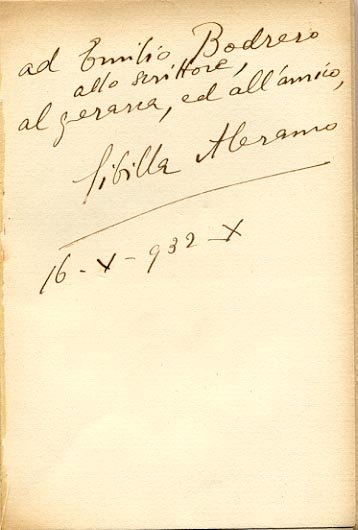 ad Emilio Bodrero
allo scrittore,
al gerarca, ed all'amico,
Sibilla Aleramo
16 - X - 932 - X